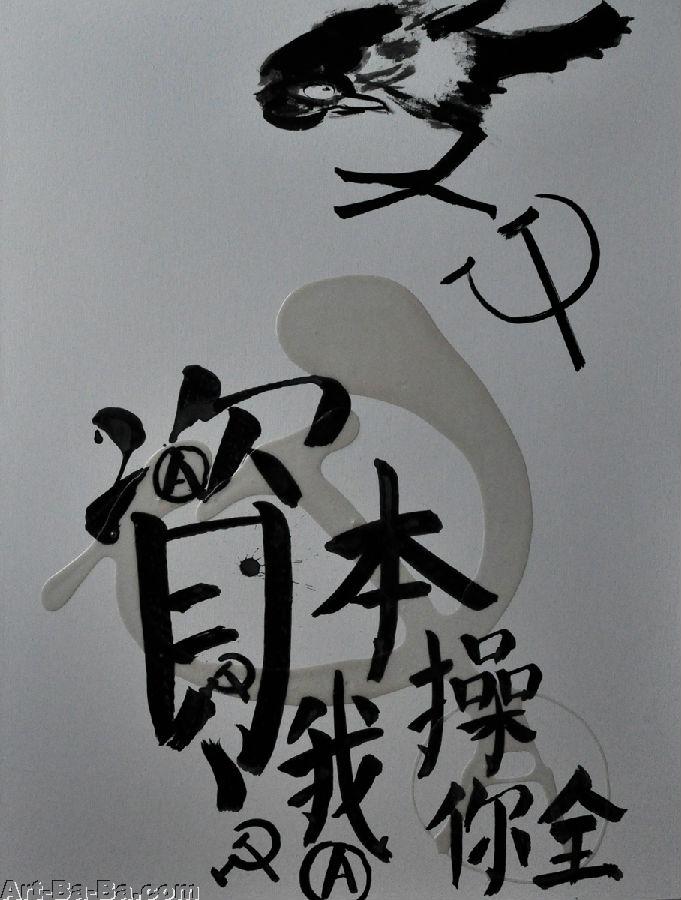 資本
我操
你全
Ⓐ
Ⓐ
Art-Ba-Ba.com